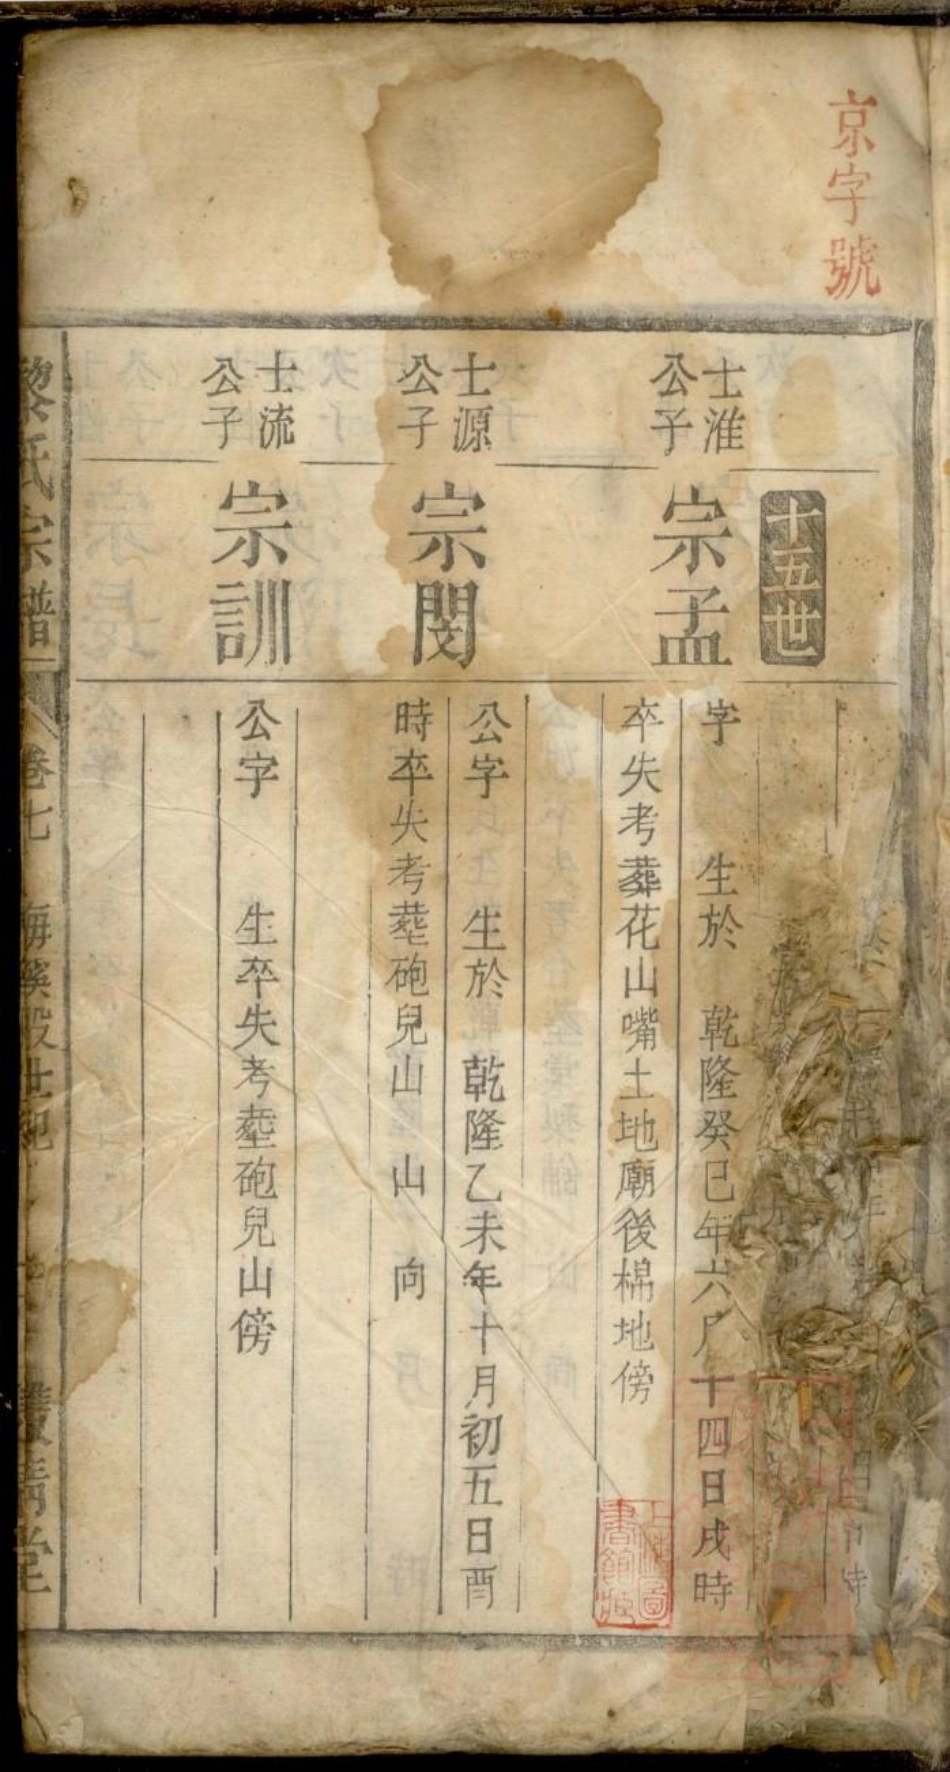 京字號
十五世
士淮
公子
宗孟
字 生於 乾隆癸巳年六月十四日戌時
卒失考葬花山嘴土地廟後棉地傍
士源
公子
宗閔
公字 生於 乾隆乙未年十月初五日酉
時卒失考塟砲兒山 山 向
士流
公子
宗訓
公字 生卒失考塟砲兒山傍
黎氏宗譜
卷七